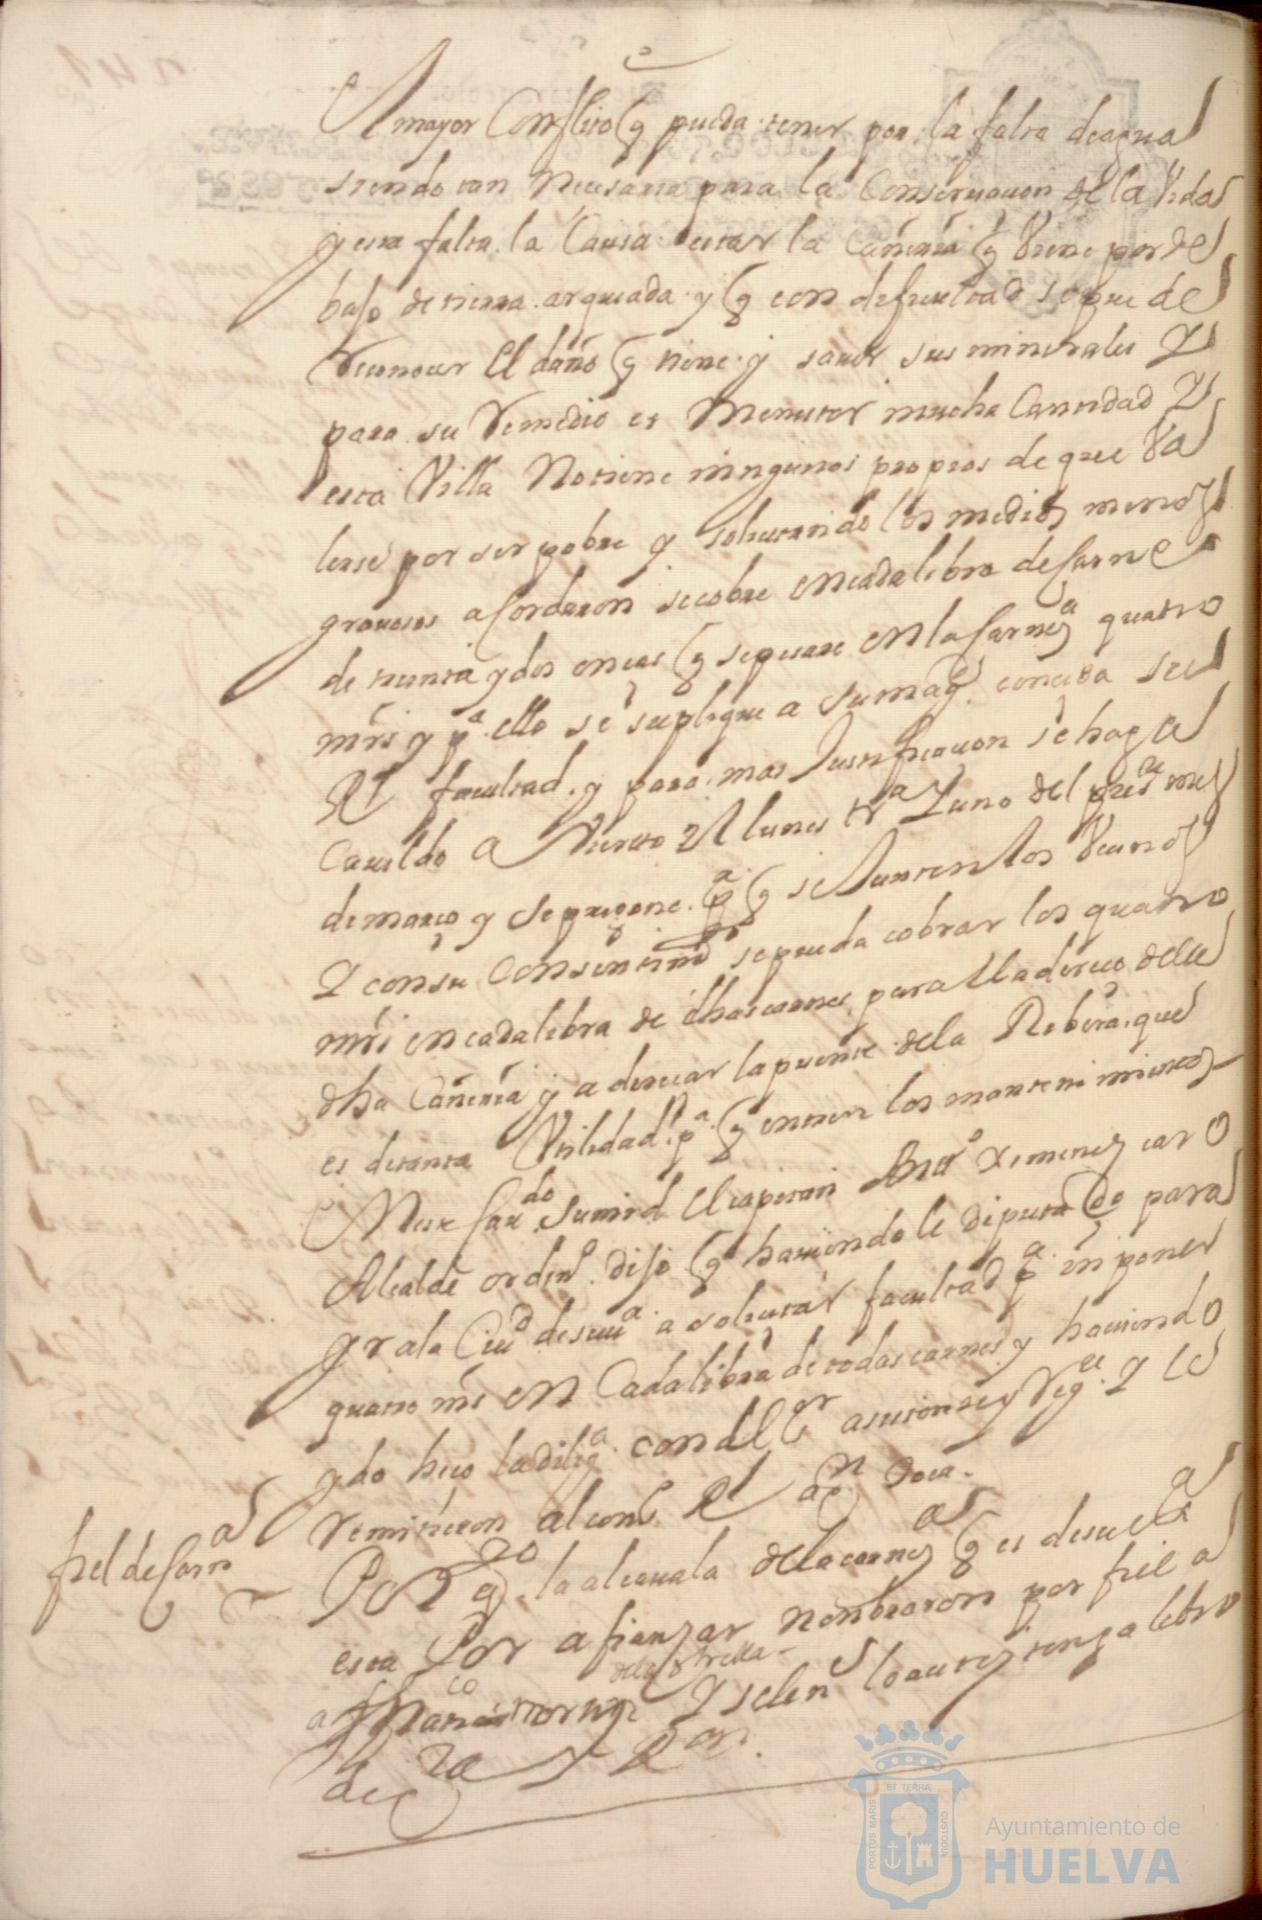 mayor Conflito q pueda tener por la falta de agua
siendo tan Necesaria para la Conseruacion de la Vida
y esta falta la Causa estar la Cañeria q Viene por de
bajo de tierra arqueada y q con dificultad se puede
Reconocer El daño q tiene y sauer sus minerales Y
para su Remedio es Menester mucha Cantidad Y
esta Villa No tiene ningunos propios de que Va
lerse por ser pobre y solicitando los medios menos
grauosos acordaron se cobre en cada libra de Carne
de treinta y dos onzas q se pesare en la Carneª quatro
mrs y pª ello se suplique a su magᵈ conceda su
Rl facultad y para mas Justificacion se haga
Cauildo a Vierto El lunes tr.ª Y uno del presᵗᵉ mes
de março y se pregone pª q se Junten los Vecinos
Y con su Consentimᵗᵒ se pueda cobrar los quatro
mrs en cada libra de dhas carnes para El adereço de la
dha Cañeria y aderecar la puente de la Ribera que
es de tanta Vtilidad pª q entren los mantenimientos
En este Cauᵈᵒ su mrd El capitan Antᵒ Ximenez caro
Alcalde ordinº dijo q hauiendole diputado para
yr a la Ciuᵈ de seuª a solicitar facultad pª inponer
quatro mrs en Cada libra de todas carnes y hauiendo
ydo hiço la diligª con el Sᵒʳ asistente y Regᵗᵉ Y le
Remitieron al conº Rl
fiel de Carnᵃˢ
Por qᵗᵒ la alcauala de las carnes q es de
esta Por afianzar nonbraron por fiel a
a
de la estrella
Y se le lo acete y tenga libro
de Rᵒⁿ
Ayuntamiento de
HUELVA
PORTUS MARIS ET TERRA CUSTODIA